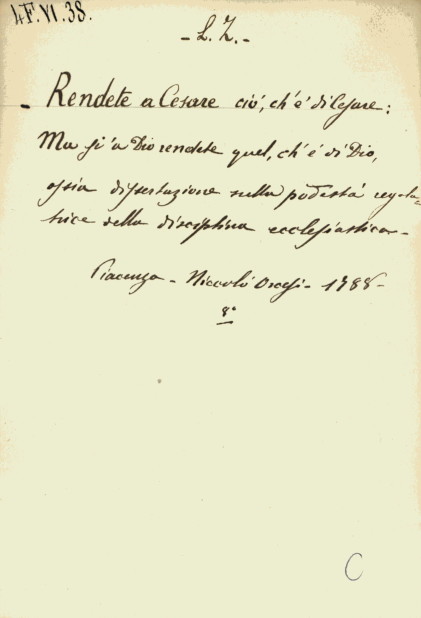 4F.VI.38.
- L. Z. -
- Rendete a Cesare ciò, ch'è di Cesare:
Ma si a Dio rendete quel, ch'è di Dio,
ossia dissertazione sulla podestà regola-
trice della disciplina ecclesiastica -
Piacenza - Niccolò Orcesi - 1788 -
8°
C